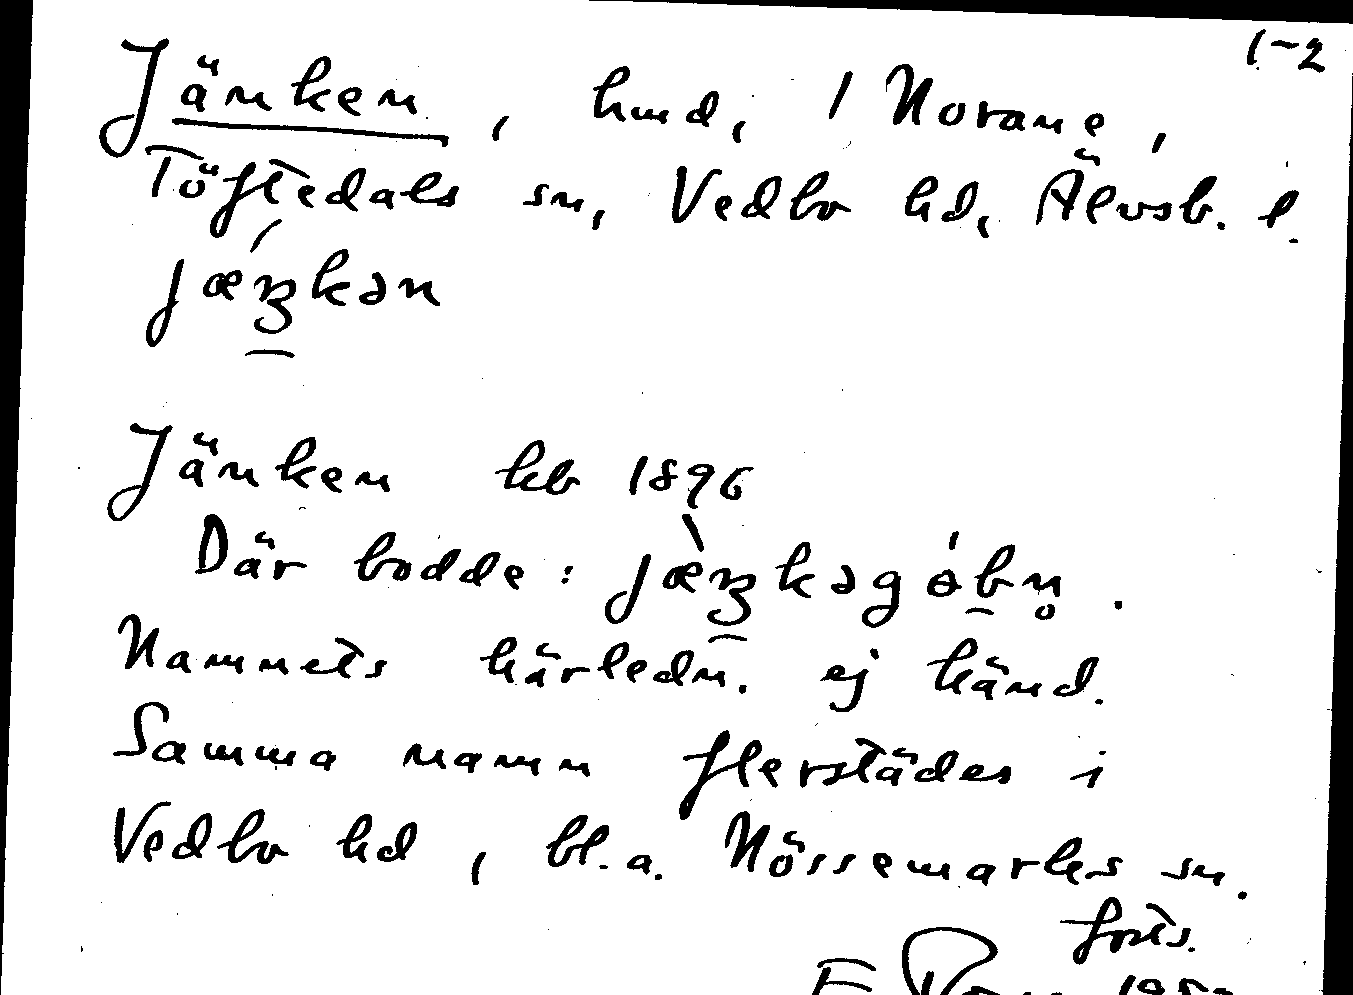 1-2
Jänken, hmd, / Norane,
Töftedals sn, Vedbo hd, Älvsb. l.
jǽŋkən
Jänken kb 1896
Där bodde: jæ̀ŋkəgóbn̥.
Namnets härledn. ej känd.
Samma namn flerstädes i
Vedbo hd, bl.a. Nössemarks sn.
forts.